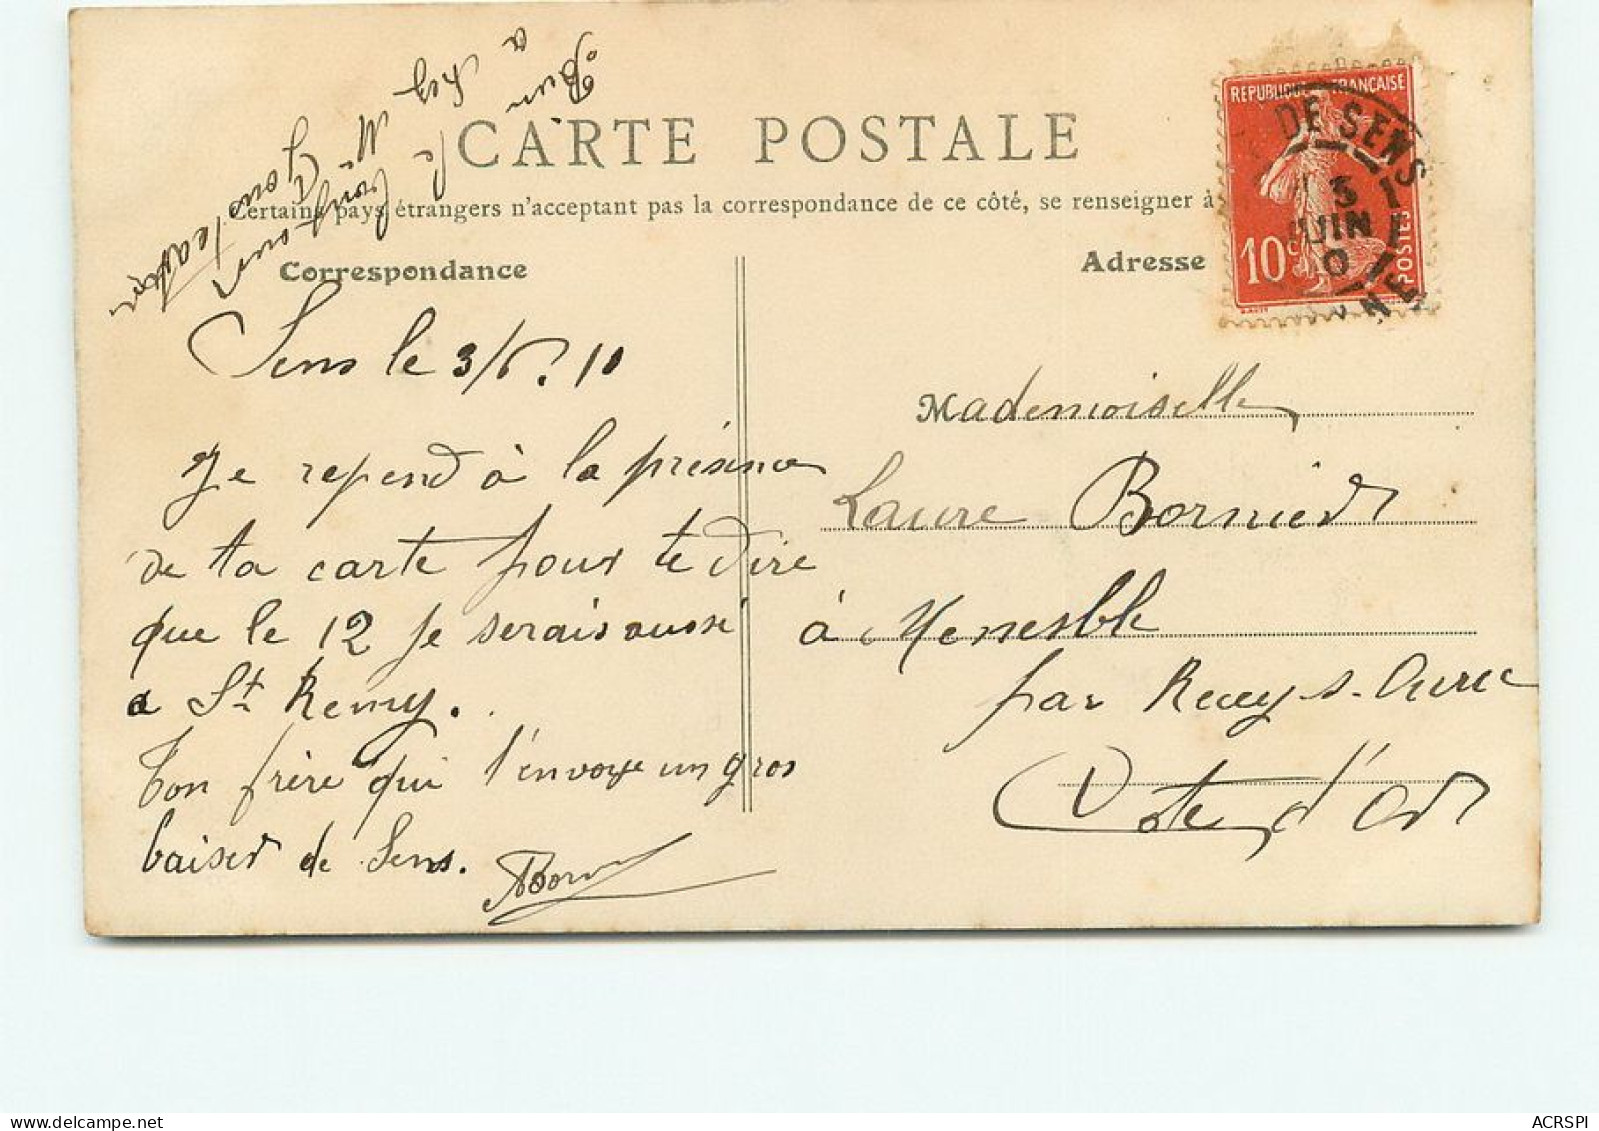 CARTE POSTALE
Certains pays étrangers n'acceptent pas la correspondance de ce côté, se renseigner à
Correspondance
Adresse
REPUBLIQUE FRANÇAISE
10c
POSTES
DE SENS
5
JUIN
NE
Bien le
a
Mr
Sens le 3/6.10
Je repend à la présence
de ta carte pour te dire
que le 12 je serais aussi
a St Remy.
Ton frère qui t'envoye un gros
baiser de Sens.
Mademoiselle
Laure Bornier
à Menesble
par Recey-s-Ource
Côte d'Or
ACRSPI